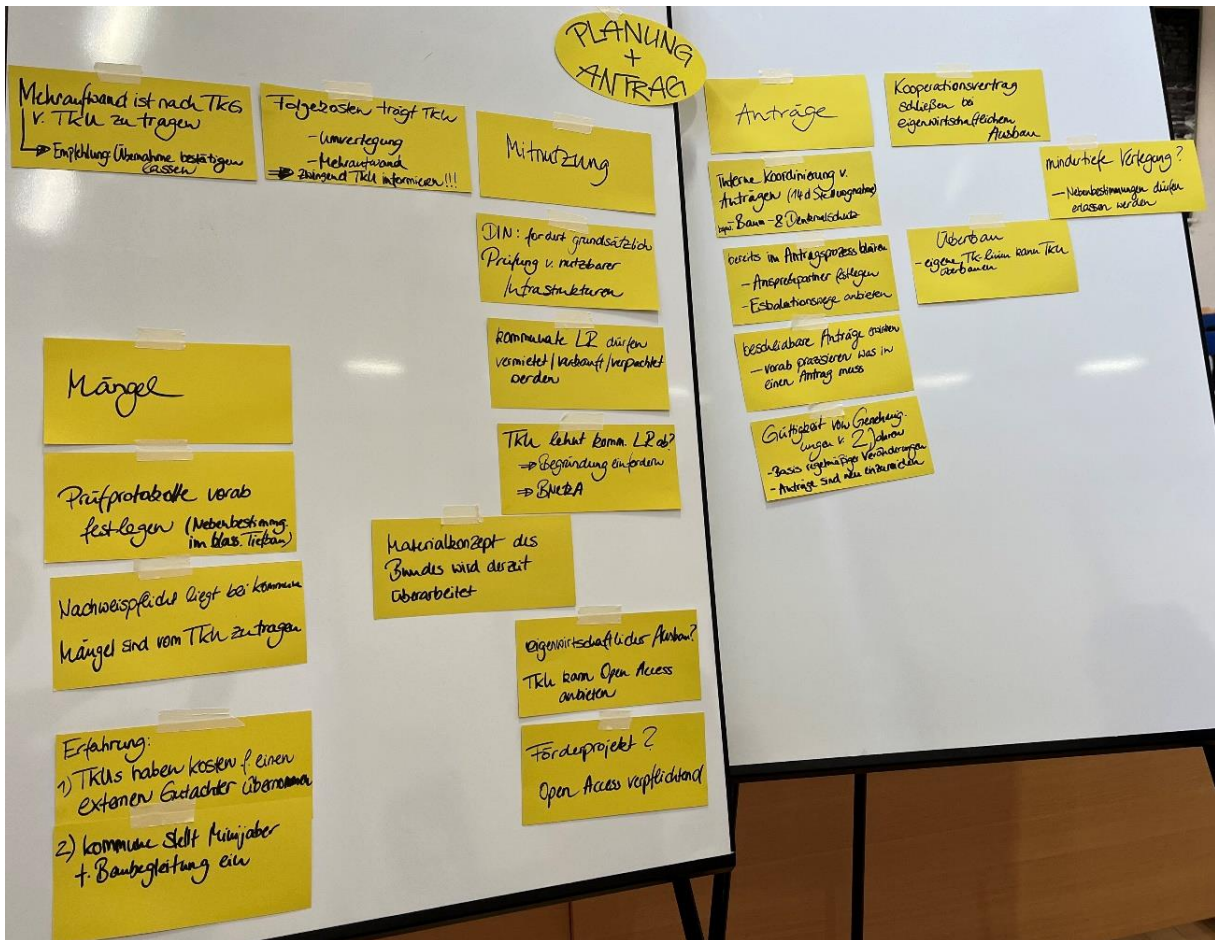 PLANUNG
+
ANTRAG
Mehraufwand ist nach TKG
v. TKU zu tragen
Empfehlung: Übernahme bestätigen
lassen
Folgekosten trägt TKU
- Umverlegung
- Mehraufwand
zwingend TKU informieren!!!
Mitnutzung
DIN: fordert grundsätzlich
Prüfung v. nutzbarer
Infrastrukturen
kommunale LR dürfen
vermietet/verkauft/verpachtet
werden
TKU lehnt komm. LR ab?
⇒ Begründung einfordern
⇒ BNetzA
Materialkonzept des
Bundes wird derzeit
überarbeitet
eigenwirtschaftlicher Ausbau?
TKU kann Open Access
anbieten
Förderprojekt?
Open Access verpflichtend
Mängel
Prüfprotokolle vorab
festlegen (Nebenbestimmg.
im klass. Tiefbau)
Nachweispflicht liegt bei Kommune
Mängel sind vom TKU zu tragen
Erfahrung:
1) TKUs haben Kosten f. einen
externen Gutachter übernommen
2) Kommune stellt Minijober
f. Baubegleitung ein
Anträge
Interne Koordinierung v.
Anträgen (14d Stellungnahme)
Baum- & Denkmalschutz
bereits im Antragsprozess klären
- Ansprechpartner festlegen
- Eskalationswege anbieten
bescheidbare Anträge
- vorab präzisieren was in
einen Antrag muss
Gültigkeit von Genehmig-
ungen v. 2 Jahren
- Basis regelmäßiger Veränderungen
- Anträge sind neu einzureichen
Kooperationsvertrag
schließen bei
eigenwirtschaftlichem
Ausbau
mindertiefe Verlegung?
- Nebenbestimmungen dürfen
erlassen werden
Überbau
- eigene TK-Linien kann TKU
überbauen